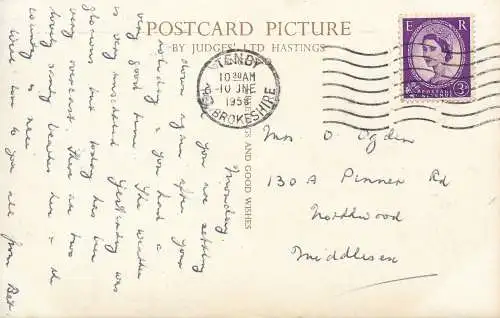 POSTCARD PICTURE
BY JUDGES' LTD HASTINGS
TENBY
10 30 AM
10 JNE
195
PEMBROKESHIRE
E R
POSTAGE
REVENUE
3D
GREETINGS AND GOOD WISHES
Monday.
You are settling
down again after your
holiday & you had a
very good time. The weather
is very unsettled yesterday was
glorious but today has been
very overcast. There are two
lovely sandy beaches here & the
country is nice.
love to you all from Bet.
Mrs O Ogden
130A Pinner Rd
Northwood
Middlesex